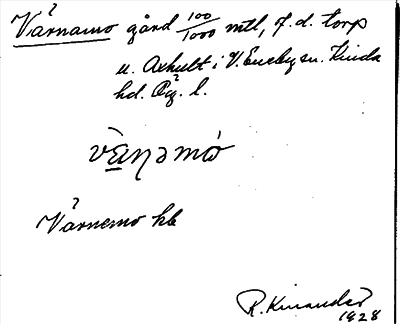 Värnamo gård 100/1000 mtl, f. d. torp
u. Axhult i V. Eneby sn. Kinda
hd. Ög. l.
vä̀ṇəmò
Värnemo hb
R. Kinander
1928